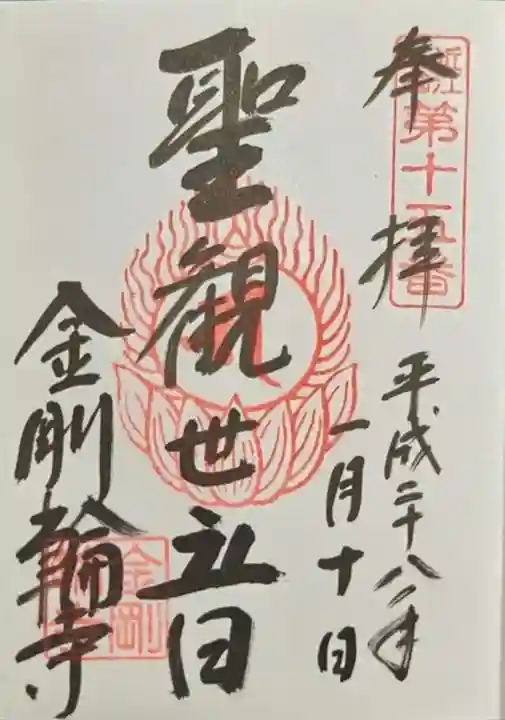 奉拝
近江第十五番
平成二十八年
一月十日
聖観世音
金剛輪寺
金剛